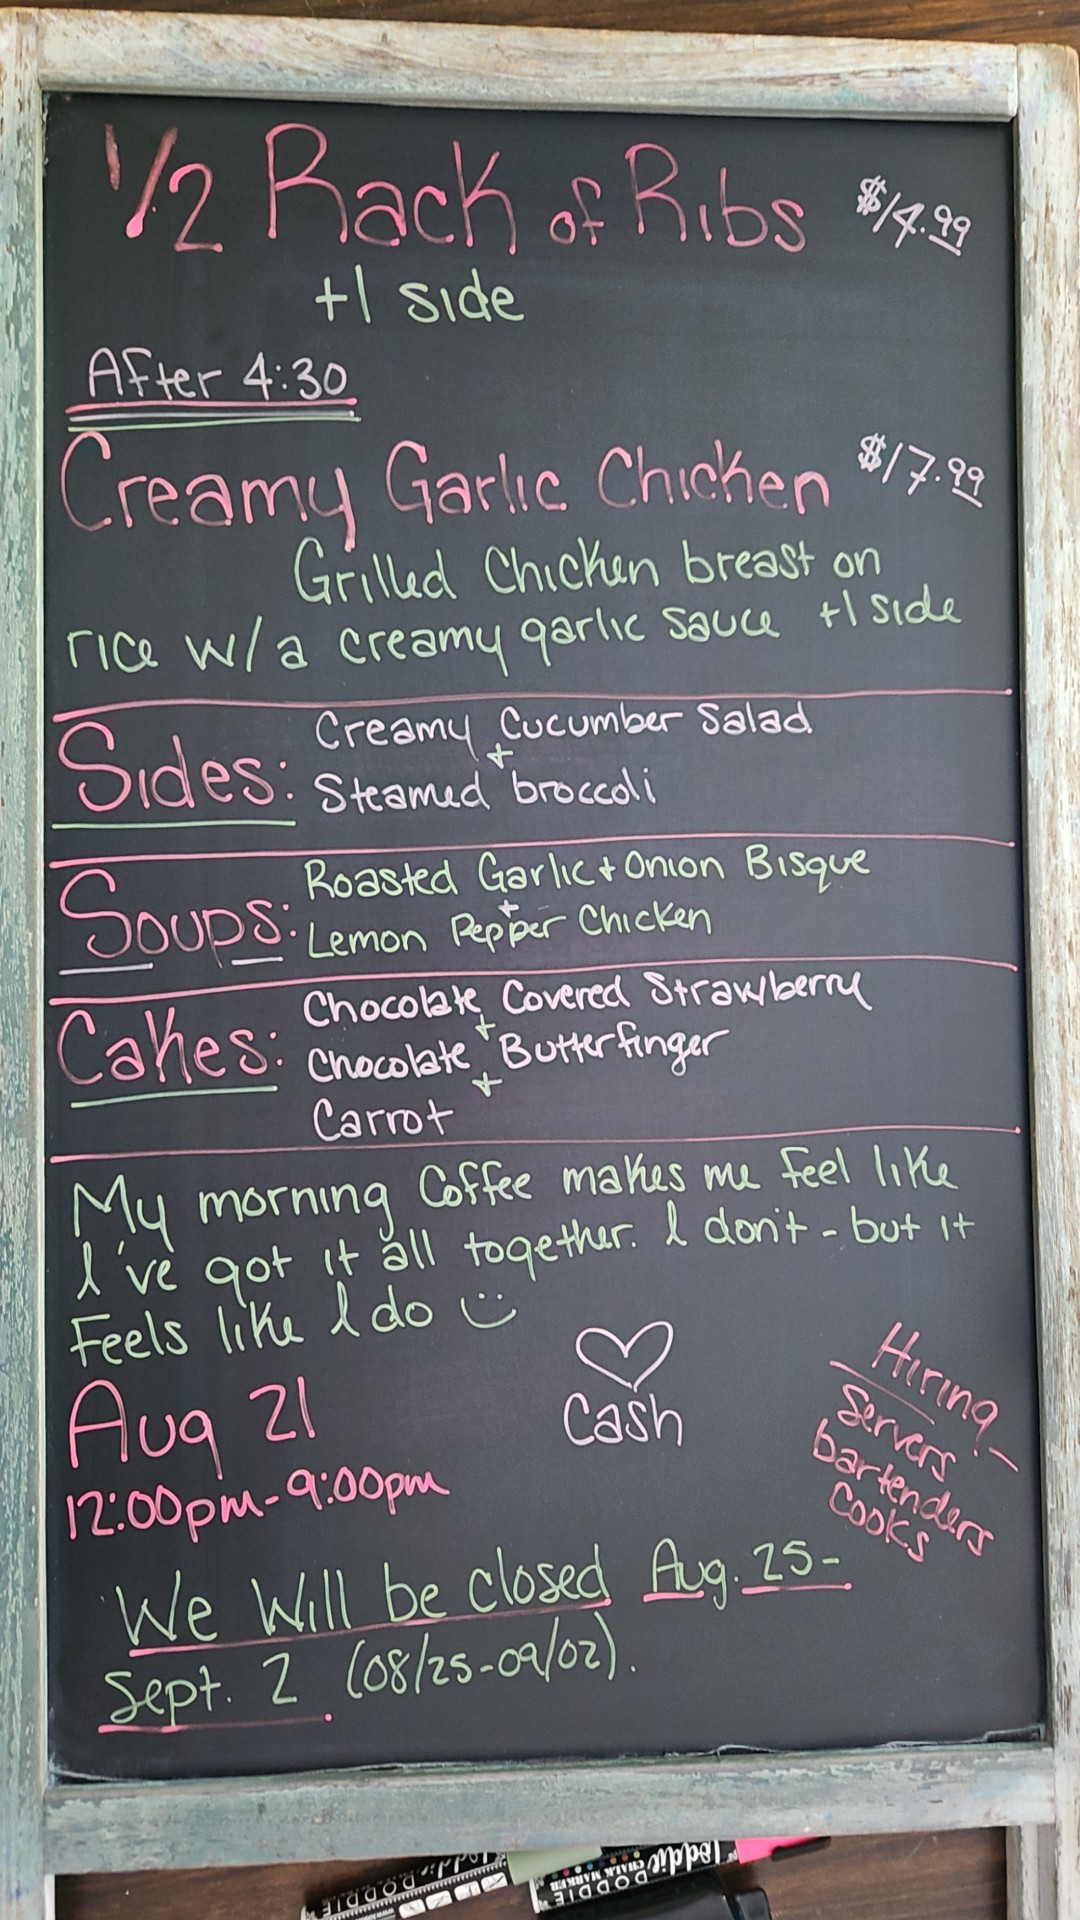 1/2 Rack of Ribs $14.99
+1 side
After 4:30
Creamy Garlic Chicken $17.99
Grilled Chicken breast on
rice w/a creamy garlic sauce +1 side
Sides: Creamy Cucumber Salad
+
Steamed broccoli
Soups: Roasted Garlic + Onion Bisque
+
Lemon Pepper Chicken
Cakes: Chocolate Covered Strawberry
+
Chocolate Butterfinger
+
Carrot
My morning Coffee makes me feel like
I've got it all together. I don't - but it
Feels like I do
Aug 21
12:00pm-9:00pm
Cash
Hiring-
Servers
bartenders
Cooks
We Will be closed Aug. 25-
Sept. 2 (08/25-09/02).
DODDIE
DODDIE
CHALK MARKER